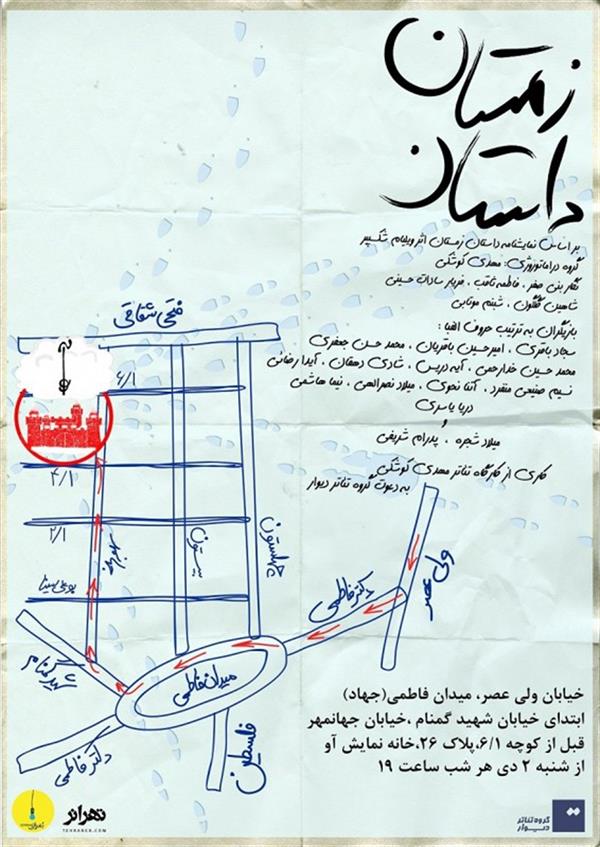 زمستان
داستان
بر اساس نمایشنامه داستان زمستان اثر ویلیام شکسپیر
گروه دراماتورژی: مهدی کوشکی
نگار بنی صفر ، فاطمه ثاقب ، فربار سادات حسینی
شاهین گلگون ، شبنم
بازیگران به ترتیب حروف الفبا :
سجاد باقری ، امیرحسین باقریان ، محمد حسن جعفری
محمد حسین خدارحمی ، آیه دریس ، شادی دهقان ، آیدا رضائی
نسیم صنیعی منفرد ، آتنا نحوی ، میلاد نصرالهی ، نیما هاشمی
دریا یاسری
و
میلاد شجره ، پدرام شریفی
کاری از کارگاه تئاتر مهدی کوشکی
به دعوت گروه تئاتر دیوار
فتحی شقاقی
۶/۱
۴/۱
۲/۱
بوعلی سینا
جهانمهر
بیستون
چهلستون
ولی عصر
دکتر فاطمی
میدان فاطمی
شهید گمنام
دکتر فاطمی
فلسطین
خیابان ولی عصر، میدان فاطمی(جهاد)
ابتدای خیابان شهید گمنام ،خیابان جهانمهر
قبل از کوچه ۶/۱،پلاک ۲۶،خانه نمایش آو
از شنبه ۲ دی هر شب ساعت ۱۹
تهرانر
TEHRANER.COM
گروه تئاتر
دیوار